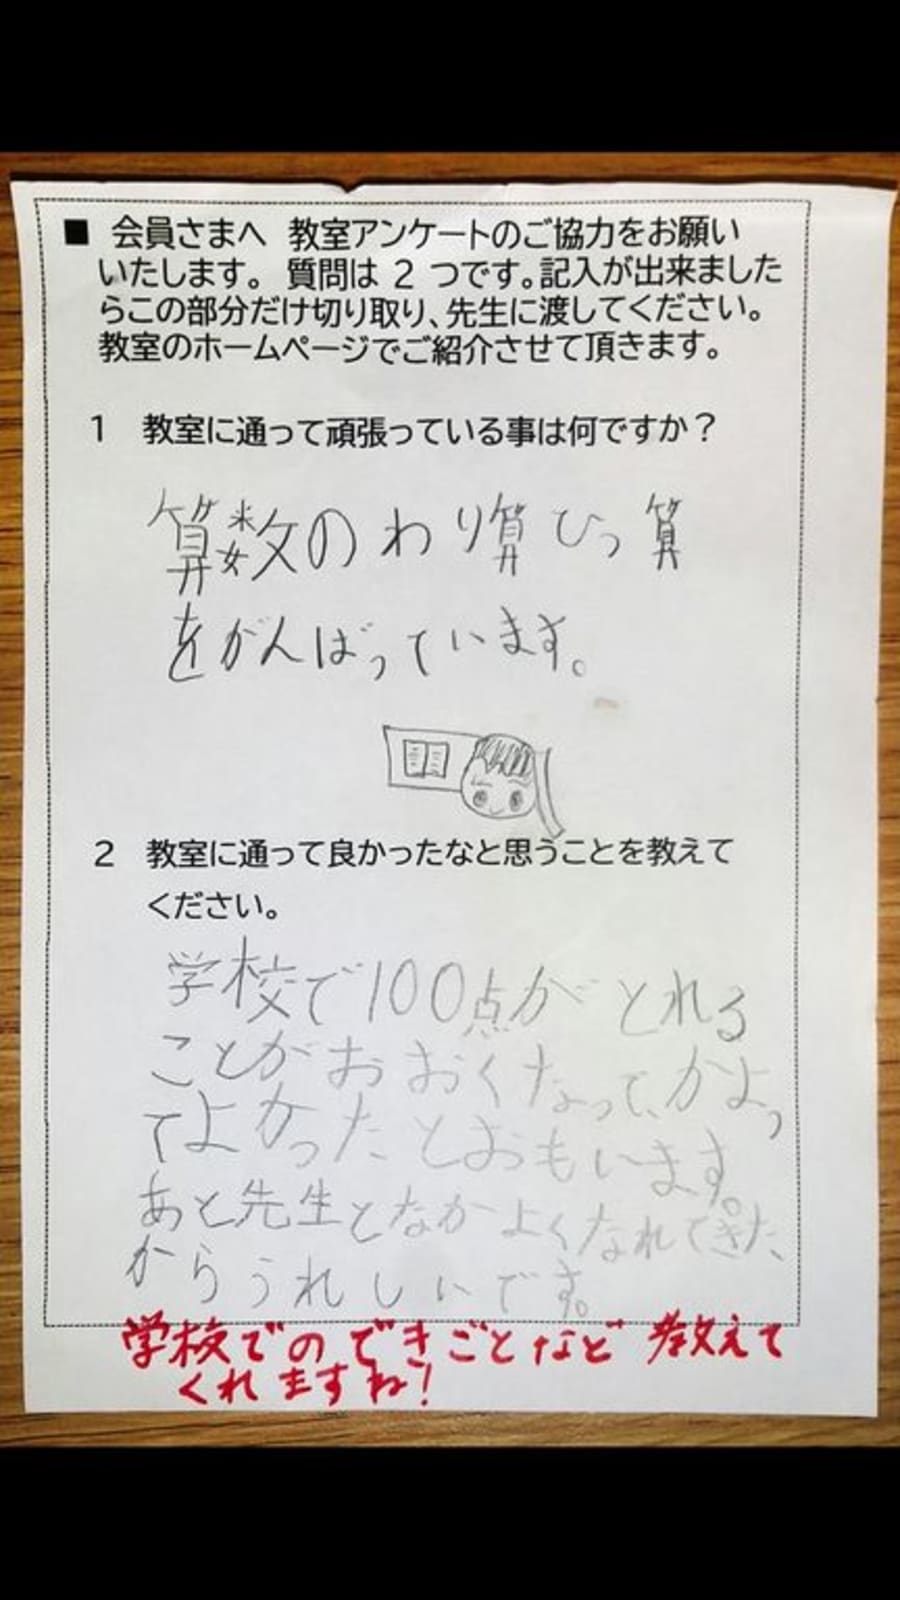 ■ 会員さまへ 教室アンケートのご協力をお願い
いたします。 質問は 2 つです。記入が出来ました
らこの部分だけ切り取り、先生に渡してください。
教室のホームページでご紹介させて頂きます。
1 教室に通って頑張っている事は何ですか？
算数のわり算ひっ算
をがんばっています。
2 教室に通って良かったなと思うことを教えて
ください。
学校で100点がとれる
ことがおおくなって、かよっ
てよかったとおもいます。
あと先生となかよくなれてきた、
からうれしいです。
学校でのできごとなど教えて
くれますね!